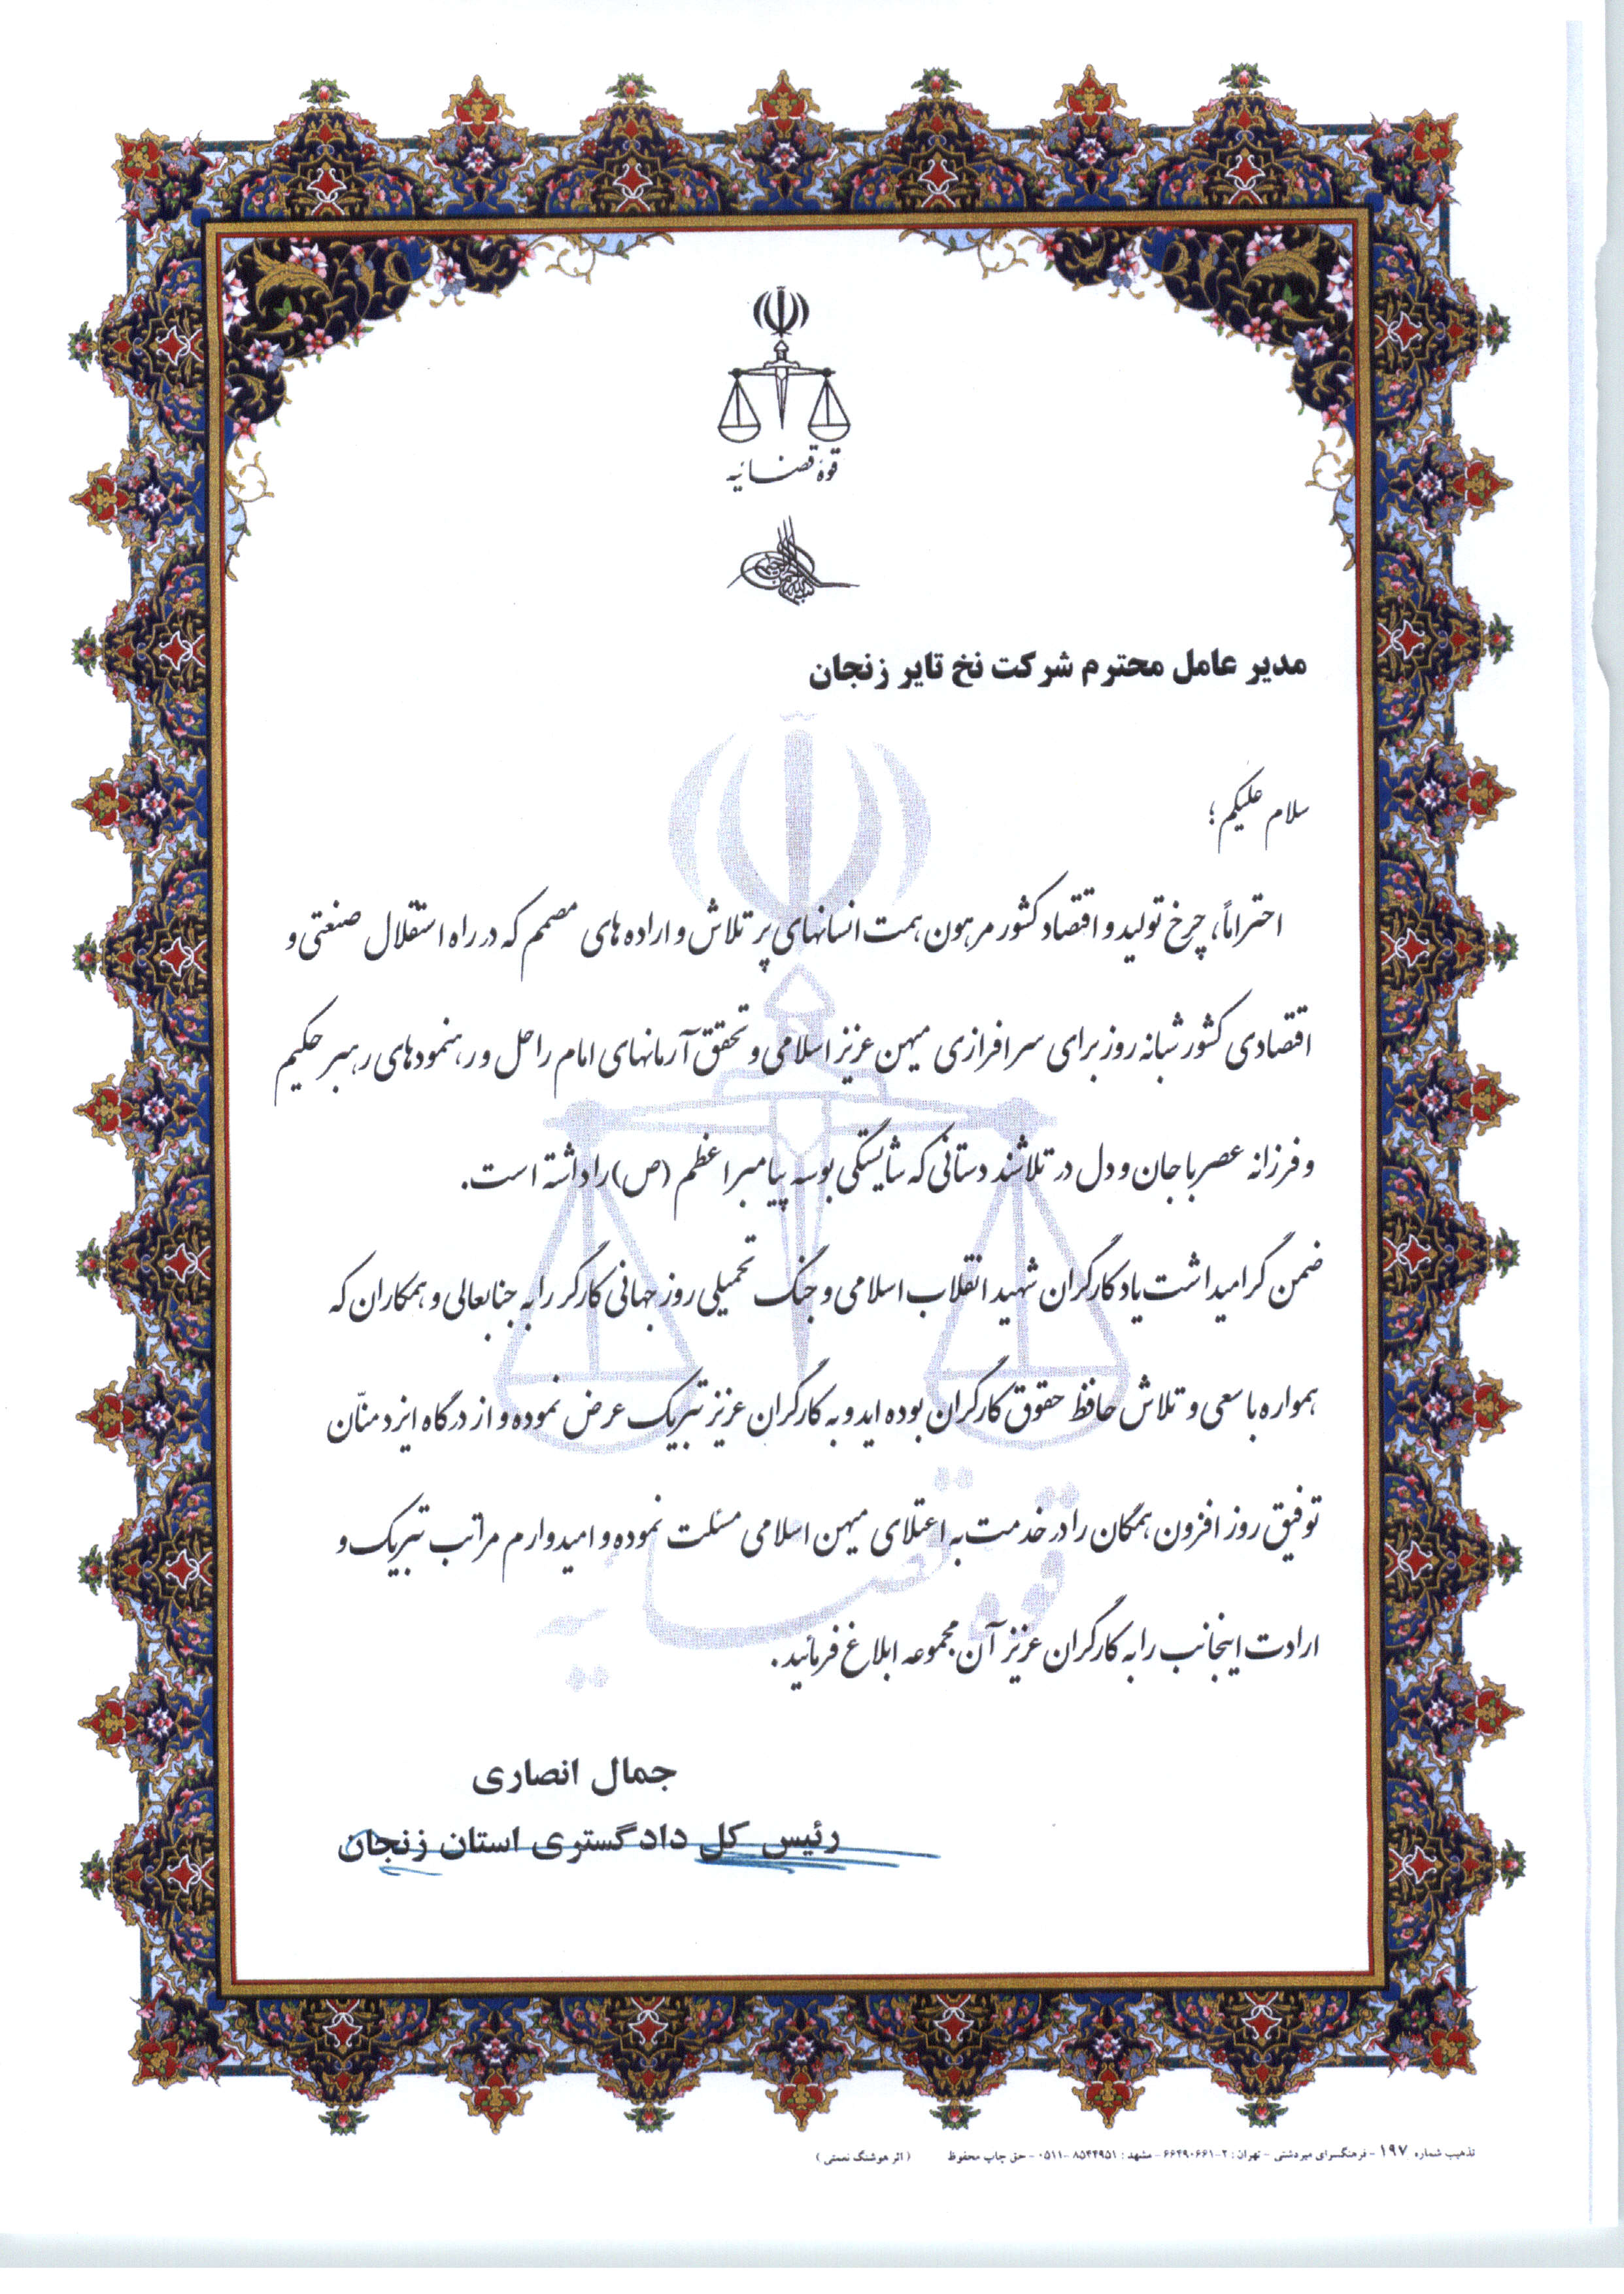 قوۀ قضائیه
بسم الله الرحمن الرحیم
مدیر عامل محترم شرکت نخ تایر زنجان
سلام علیکم؛
احتراماً، چرخ تولید و اقتصاد کشور مرهون همت انسانهای پر تلاش و اراده های مصمم که در راه استقلال صنعتی و
اقتصادی کشور شبانه روز برای سرافرازی میهن عزیز اسلامی و تحقق آرمانهای امام راحل و رهنمودهای رهبر حکیم
و فرزانه عصر با جان و دل در تلاشند دستانی که شایستگی بوسه پیامبر اعظم (ص) را داشته است.
ضمن گرامیداشت یاد کارگران شهید انقلاب اسلامی و جنگ تحمیلی روز جهانی کارگر را به جنابعالی و همکاران که
همواره با سعی و تلاش حافظ حقوق کارگران بوده اید و به کارگران عزیز تبریک عرض نموده و از درگاه ایزد منّان
توفیق روز افزون همگان را در خدمت به اعتلای میهن اسلامی مسئلت نموده و امیدوارم مراتب تبریک و
ارادت اینجانب را به کارگران عزیز آن مجموعه ابلاغ فرمائید.
جمال انصاری
رئیس کل دادگستری استان زنجان
تذهیب شماره ۱۹۷ - فرهنگسرای میردشتی - تهران : ۲-۶۶۴۹۰۶۶۱ - مشهد : ۸۵۴۴۹۵۱-۰۵۱۱ - حق چاپ محفوظ (اثر هوشنگ نعمتی)